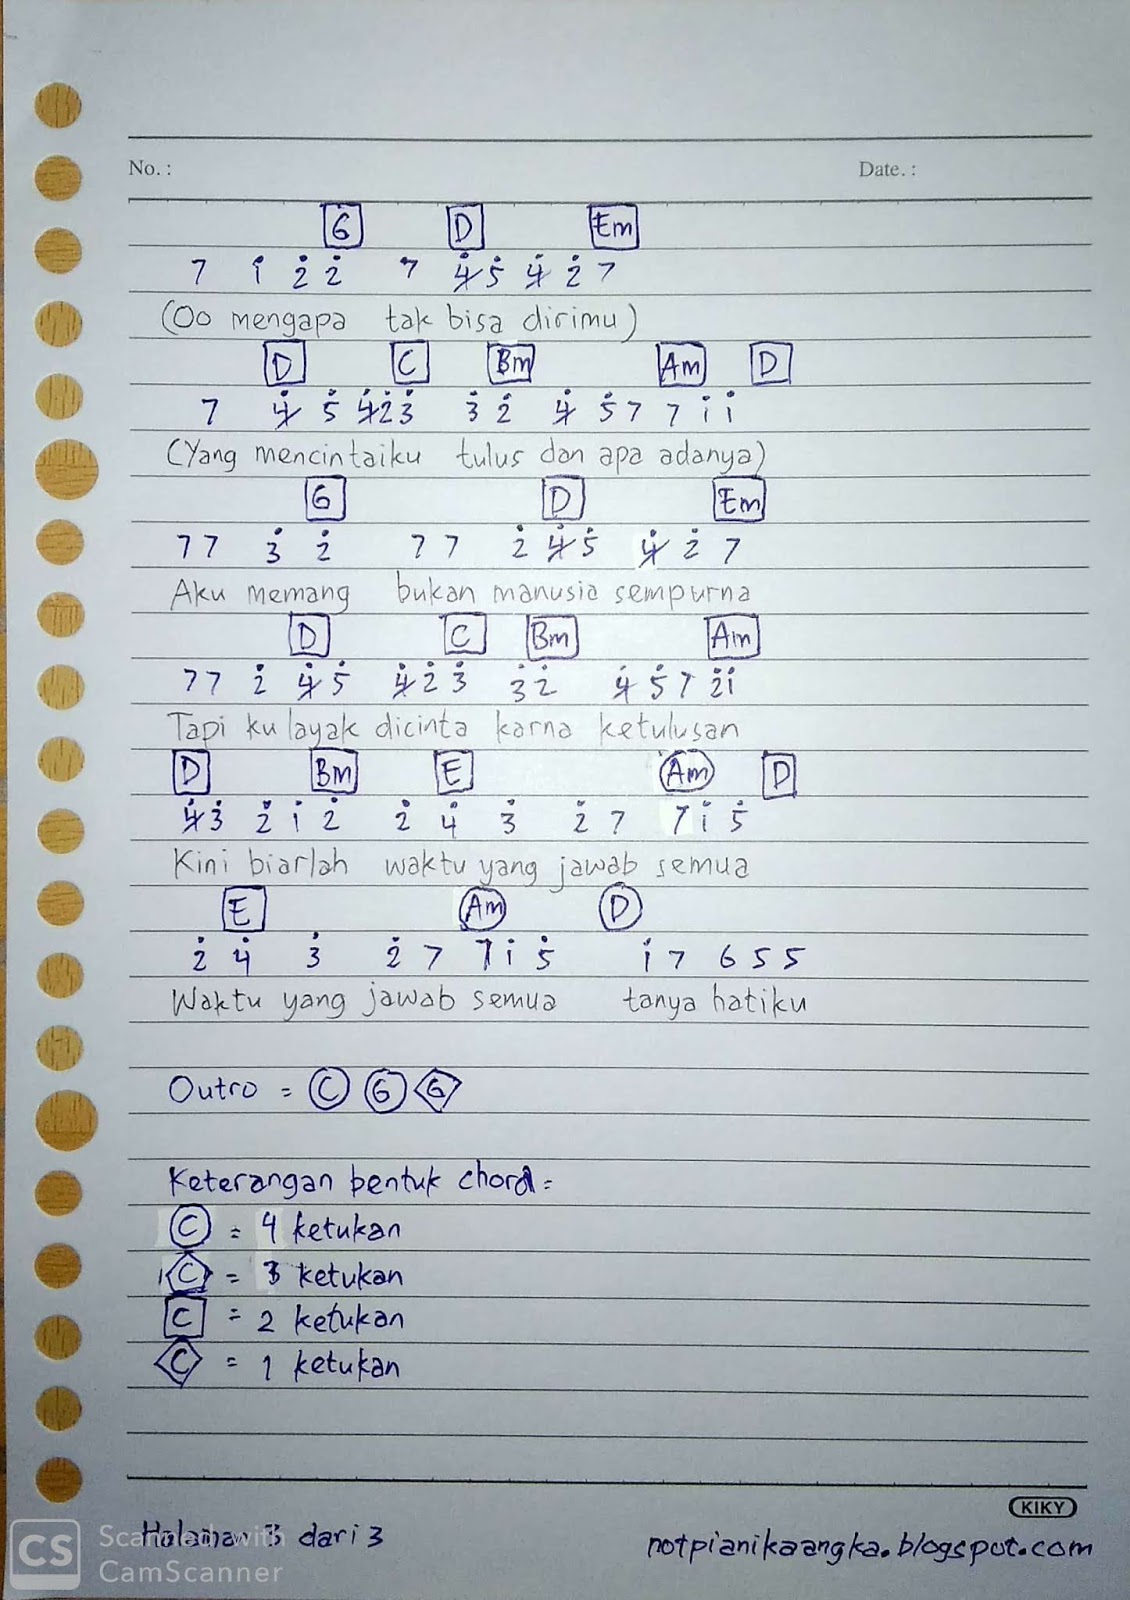 No. : Date. :
G D Em
7 i 2̇ 2̇ 7 4̸̇ 5̇ 4̸̇ 2̇ 7
(Oo mengapa tak bisa dirimu)
D C Bm Am D
7 4̸̇ 5̇ 4̸̇ 2̇ 3̇ 3̇ 2̇ 4̸̇ 5̇ 7 7 i i
(Yang mencintaiku tulus dan apa adanya)
G D Em
7 7 3̇ 2̇ 7 7 2̇ 4̸̇ 5̇ 4̸̇ 2̇ 7
Aku memang bukan manusia sempurna
D C Bm Am
7 7 2̇ 4̸̇ 5̇ 4̸̇ 2̇ 3̇ 3̇ 2̇ 4̸̇ 5̇ 7 2̇ i
Tapi ku layak dicinta karna ketulusan
D Bm E Am D
4̸̇ 3̇ 2̇ i 2̇ 2̇ 4̇ 3̇ 2̇ 7 7 i 5̇
Kini biarlah waktu yang jawab semua
E Am D
2̇ 4̇ 3̇ 2̇ 7 7 i 5̇ i 7 6 5 5
Waktu yang jawab semua tanya hatiku
Outro = C G G
Keterangan bentuk chord =
C = 4 ketukan
C = 3 ketukan
C = 2 ketukan
C = 1 ketukan
KIKY
Halaman 3 dari 3 notpianikaangka.blogspot.com
CS Scanned with
CamScanner